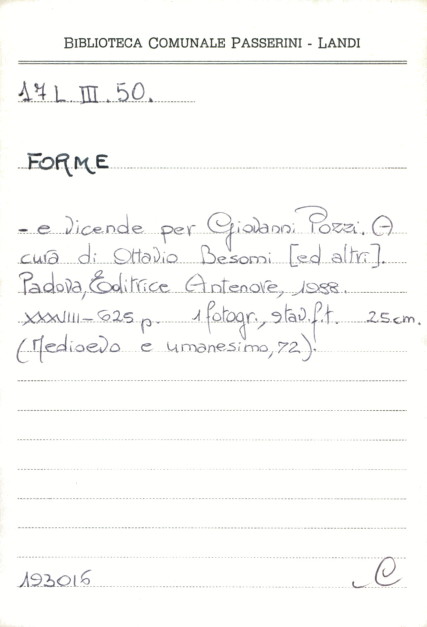 BIBLIOTECA COMUNALE PASSERINI - LANDI
17 L III.50.
FORME
- e vicende per Giovanni Pozzi. A
cura di Ottavio Besomi [ed altri].
Padova, Editrice Antenore, 1988.
XXXVIII-625 p. 1 fotogr., 9 tav.f.t. 25 cm.
(Medioevo e umanesimo, 72).
193016 C